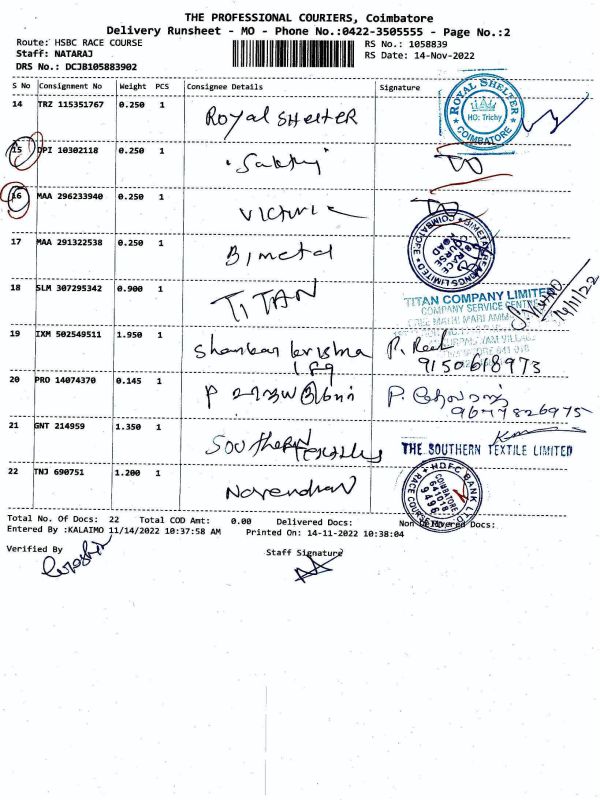 THE PROFESSIONAL COURIERS, Coimbatore
Delivery Runsheet - MO - Phone No.:0422-3505555 - Page No.:2
Route: HSBC RACE COURSE RS No.: 1058839
Staff: NATARAJ RS Date: 14-Nov-2022
DRS No.: DCJB105883902
S No Consignment No Weight PCS Consignee Details Signature
14 TRZ 115351767 0.250 1 Royal Shelter
ROYAL SHELTER
HO: Trichy
COIMBATORE
15 OPI 10302118 0.250 1
16 MAA 296233940 0.250 1 Victoria
17 MAA 291322538 0.250 1 Bimetal
COIMBATORE
RACE COURSE ROAD
18 SLM 307295342 0.900 1 TITAN
TITAN COMPANY LIMITED
COMPANY SERVICE CENTRE
14/11/22
19 IXM 502549511 1.950 1 Shankar krishna
9150618973
20 PRO 14074370 0.145 1 P
P. 9677826975
21 GNT 214959 1.350 1 Southern Textiles
THE SOUTHERN TEXTILE LIMITED
22 TNJ 690751 1.200 1 Narendran
HDFC BANK LTD
COIMBATORE
641018
9496
RACE COURSE
Total No. Of Docs: 22 Total COD Amt: 0.00 Delivered Docs: Non Delivered Docs:
Entered By :KALAIMO 11/14/2022 10:37:58 AM Printed On: 14-11-2022 10:38:04
Verified By Staff Signature